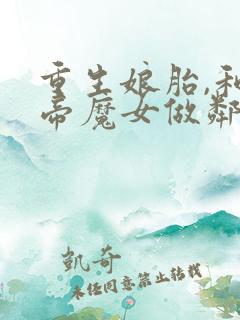 重生娘胎,和
帝魔女做鄰
凱奇
未经同意禁止转载